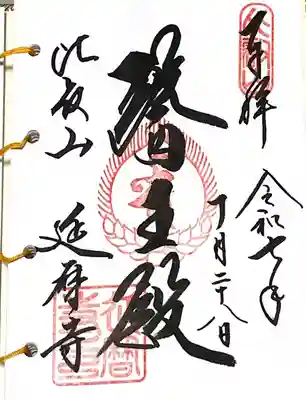 奉拝
令和七年
十月二十八日
醫王殿
比叡山
延暦寺